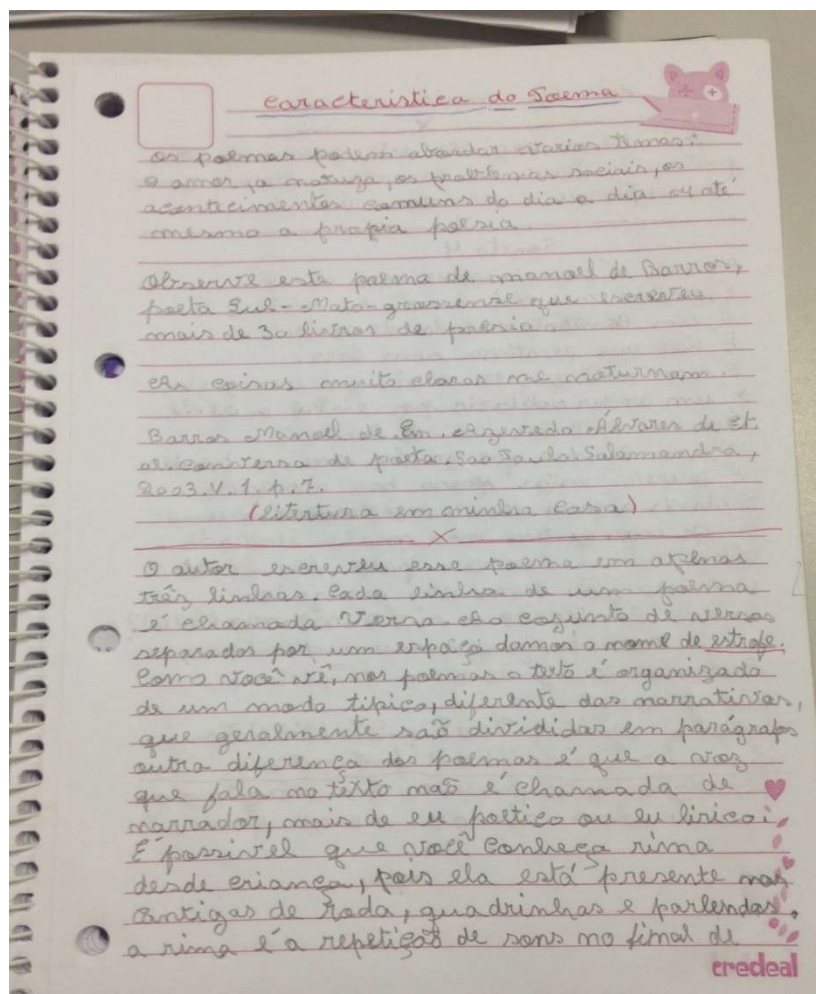 Caracteristica do Poema
os poemas podem abordar varios temas:
o amor, a natureza, os problemas sociais, os
acontecimentos comuns do dia a dia ou até
mesmo a propia poesia.
Observe este poema de manoel de Barros,
poeta Sul-Mato-grossense que escreveu
mais de 30 livros de poesia
As coisas muito claras me noturnam.
Barros Manoel de. Em. Azevedo Álvares de Et.
al. Conversa de poeta. Sao Paulo. Salamandra,
2003. V. 1. p. 7.
(litertura em minha Casa)
X
O autor escreveu esse poema em apenas
três linhas. Cada linha de um poema
é chamada Verso. Ao cojunto de versos
separados por um espaço damos o nome de estrofe.
Como você vê, nos poemas o texto é organizado
de um modo tipico, diferente das narrativas,
que geralmente saõ divididas em parágrafos
outra diferença dos poemas é que a voz
que fala no texto naõ é chamada de
narrador, mais de eu poetico ou eu lirico;
É possivel que você Conheça rima
desde criança, pois ela está presente nas
Cantigas de Roda, quadrinhas e parlendas.
a rima é a repetiçaõ de sons no final de
credeal